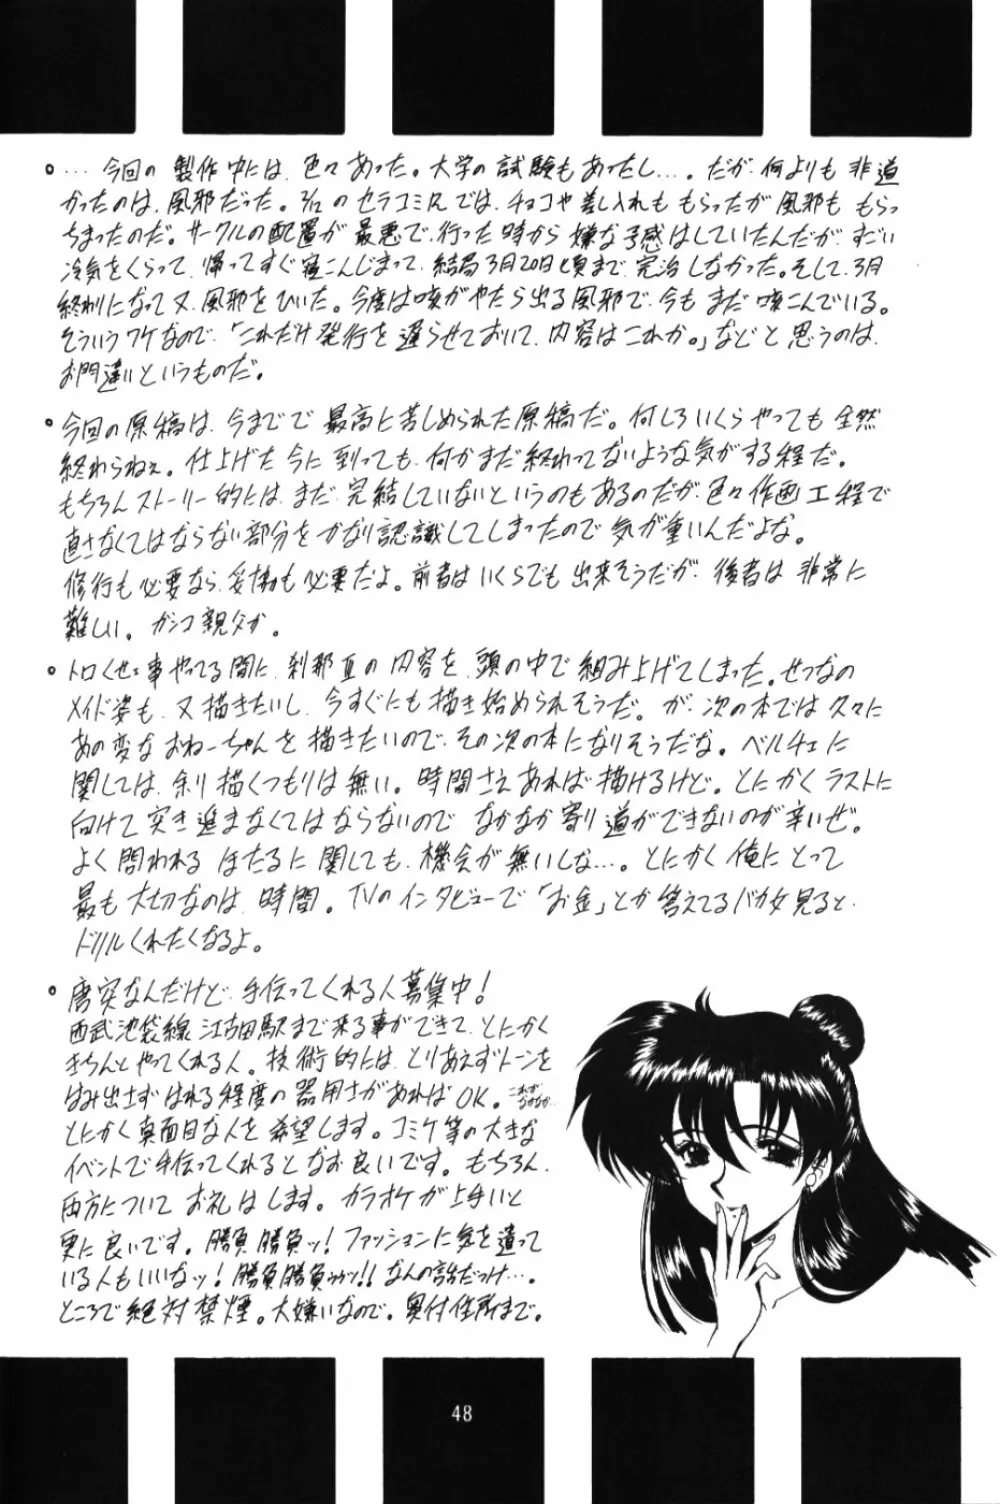 ・…今回の製作中には、色々あった。大学の試験もあったし…。だが、何よりも非道
かったのは、風邪だった。3/12のセラコミRでは、チョコや差し入れももらったが風邪ももらっ
ちまったのだ。サークルの配置が最悪で、行った時から嫌な予感はしていたんだが、すごい
冷気をくらって、帰ってすぐ寝こんじまって、結局3月20日頃まで完治しなかった。そして、3月
終わりになって又、風邪をひいた。今度は咳がやたら出る風邪で、今もまだ咳こんでいる。
そういうワケなので、「これだけ発行を遅らせておいて、内容はこれか。」などと思うのは、
お門違いというものだ。
・今回の原稿は、今までで最高に苦しめられた原稿だ。何しろいくらやっても全然
終わらねぇ。仕上げた今に到っても、何かまだ終わってないような気がする程だ。
もちろんストーリー的には、まだ完結していないというのもあるのだが、色々作画工程で
直さなくてはならない部分をかなり認識してしまったので気が重いんだよな。
修行も必要なら、妥協も必要だよ。前者はいくらでも出来そうだが、後者は非常に
難しい。ガンコ親父か。
・トロくせェ事やってる間に、刹那Ⅱの内容を、頭の中で組み上げてしまった。せつなの
メイド姿も、又描きたいし、今すぐにも描き始められそうだ。が、次の本では久々に
あの変なおねーちゃんを描きたいので、その次の本になりそうだな。ベルチェに
関しては、余り描くつもりは無い。時間さえあれば描けるけど。とにかくラストに
向けて突き進まなくてはならないので、なかなか寄り道ができないのが辛いぜ。
よく問われるほたるに関しても、機会が無いしな…。とにかく俺にとって
最も大切なのは、時間。TVのインタビューで「お金」とか答えてるバカ女見ると、
ドリルくれたくなるよ。
・唐突なんだけど、手伝ってくれる人募集中!
西武池袋線江古田駅まで来る事ができて、とにかく
きちんとやってくれる人。技術的には、とりあえずトーンを
はみ出さずはれる程度の器用さがあればOK。
とにかく真面目な人を希望します。コミケ等の大きな
イベントで手伝ってくれるとなお良いです。もちろん、
両方についてお礼はします。カラオケが上手いと
更に良いです。勝負勝負ッ!ファッションに気を遣って
いる人もいいなッ!勝負勝負ゥゥッ!!なんの話だっけ…。
ところで絶対禁煙。大嫌いなので。奥付住所まで。
48